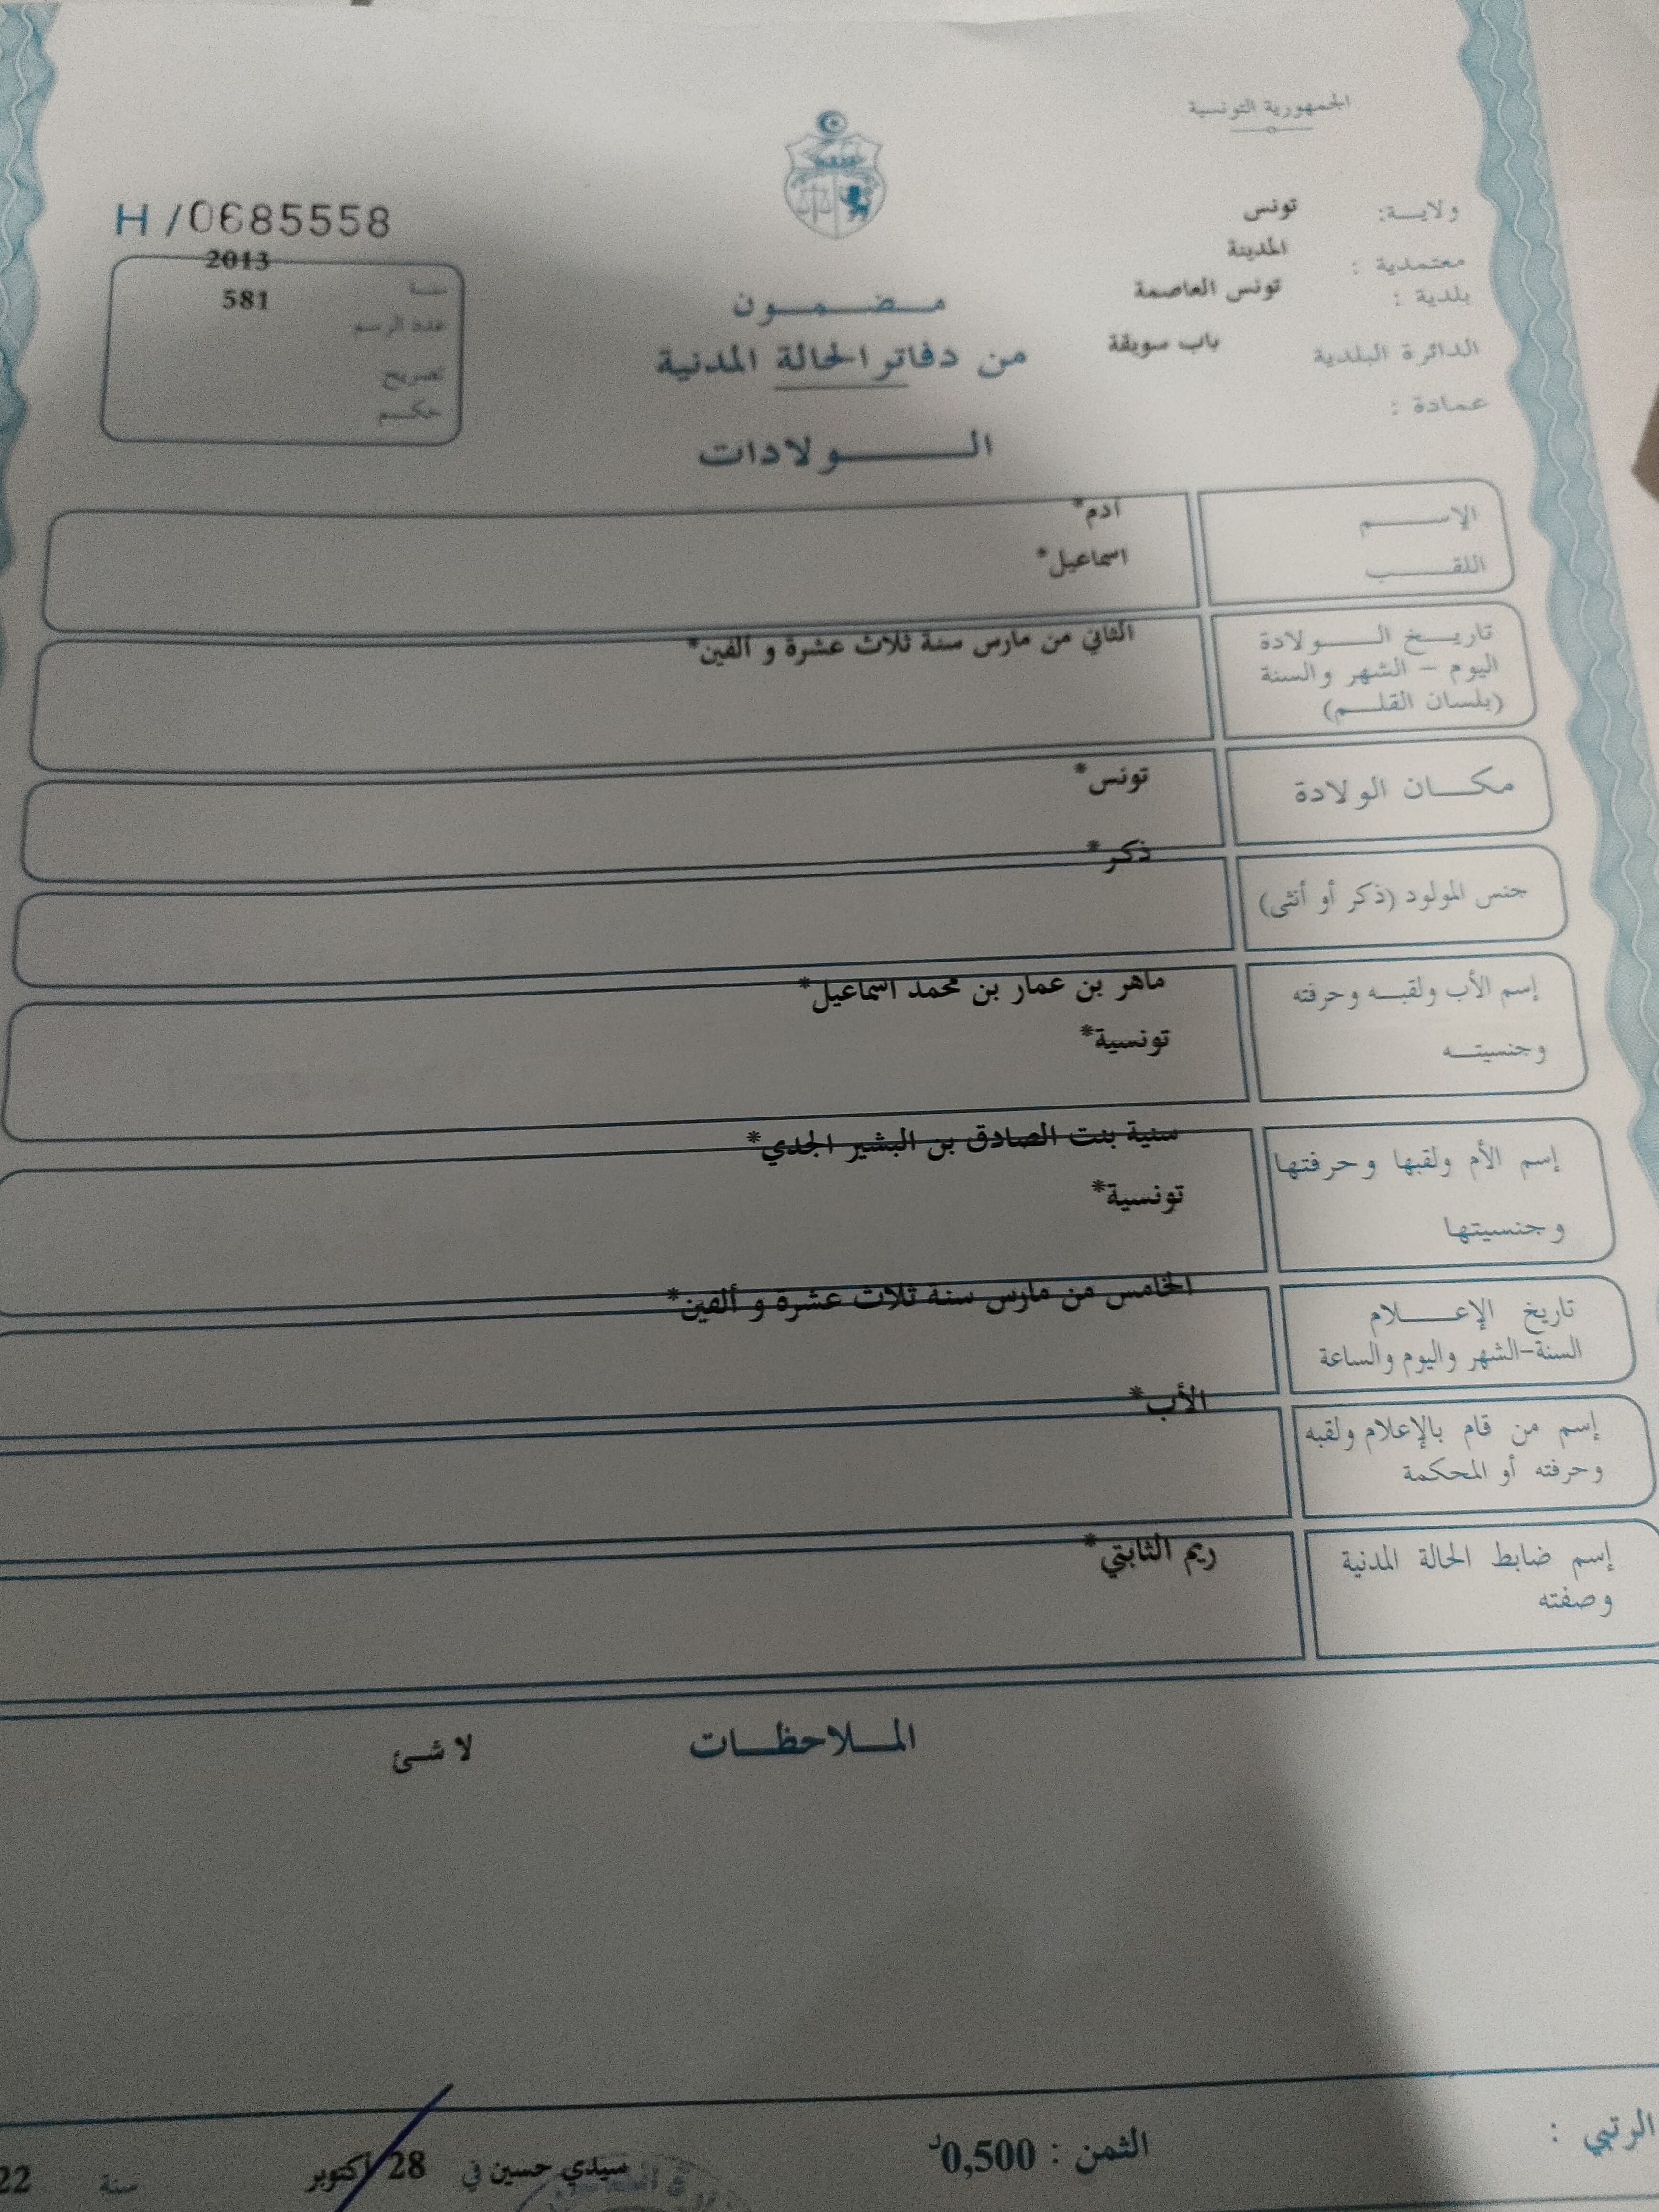 الجمهورية التونسية
ولايـــة: تونس
معتمدية : المدينة
بلدية : تونس العاصمة
الدائرة البلدية باب سويقة
عمادة :
H /0685558
سنـة 2013
عدد الرسم 581
تصريح
حكـم
مـضـمـون
من دفاتر الحالة المدنية
الـولادات
الإسـم آدم*
اللقـب اسماعيل*
تاريـخ الـولادة الثاني من مارس سنة ثلاث عشرة و ألفين*
اليوم – الشهر والسنة
(بلسان القلـم)
مكـان الولادة تونس*
جنس المولود (ذكر أو أنثى) ذكر*
إسم الأب ولقبـه وحرفته ماهر بن عمار بن محمد اسماعيل*
وجنسيتـه تونسية*
إسم الأم ولقبها وحرفتها سنية بنت الصادق بن البشير الجدي*
وجنسيتها تونسية*
تاريخ الإعـلام الخامس من مارس سنة ثلاث عشرة و ألفين*
السنة-الشهر واليوم والساعة
إسم من قام بالإعلام ولقبه الأب*
وحرفته أو المحكمة
إسم ضابط الحالة المدنية ريم الثابتي*
وصفته
المـلاحظـات لا شئ
الرتبي :
الثمن : 0,500د
سيدي حسين في 28 أكتوبر سنة 22